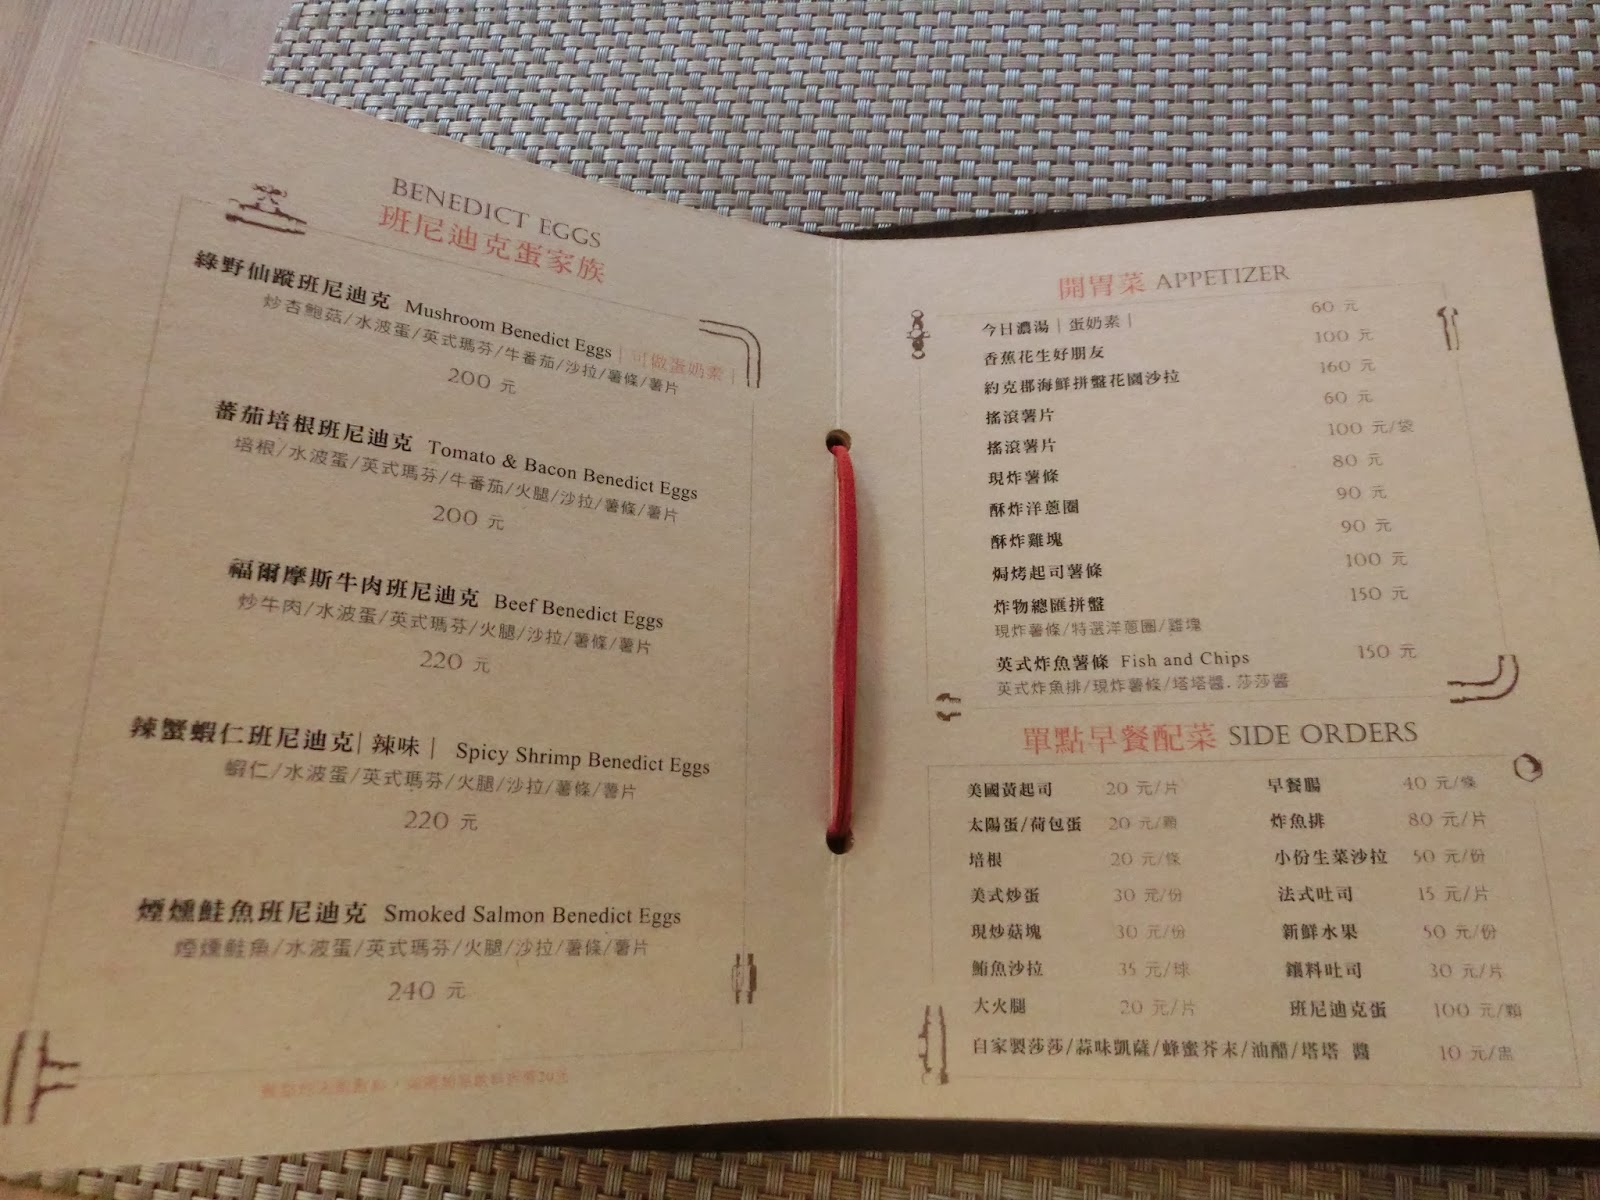 BENEDICT EGGS
班尼迪克蛋家族
綠野仙蹤班尼迪克 Mushroom Benedict Eggs｜可做蛋奶素｜
炒杏鮑菇/水波蛋/英式瑪芬/牛番茄/沙拉/薯條/薯片
200 元
蕃茄培根班尼迪克 Tomato & Bacon Benedict Eggs
培根/水波蛋/英式瑪芬/牛番茄/火腿/沙拉/薯條/薯片
200 元
福爾摩斯牛肉班尼迪克 Beef Benedict Eggs
炒牛肉/水波蛋/英式瑪芬/火腿/沙拉/薯條/薯片
220 元
辣蟹蝦仁班尼迪克｜辣味｜ Spicy Shrimp Benedict Eggs
蝦仁/水波蛋/英式瑪芬/火腿/沙拉/薯條/薯片
220 元
煙燻鮭魚班尼迪克 Smoked Salmon Benedict Eggs
煙燻鮭魚/水波蛋/英式瑪芬/火腿/沙拉/薯條/薯片
240 元
開胃菜 APPETIZER
今日濃湯｜蛋奶素｜ 60 元
香蕉花生好朋友 100 元
約克郡海鮮拼盤花園沙拉 160 元
搖滾薯片 60 元
搖滾薯片 100 元/袋
現炸薯條 80 元
酥炸洋蔥圈 90 元
酥炸雞塊 90 元
焗烤起司薯條 100 元
炸物總匯拼盤 150 元
現炸薯條/特選洋蔥圈/雞塊
英式炸魚薯條 Fish and Chips 150 元
英式炸魚排/現炸薯條/塔塔醬.莎莎醬
單點早餐配菜 SIDE ORDERS
美國黃起司 20 元/片 早餐腸 40 元/條
太陽蛋/荷包蛋 20 元/顆 炸魚排 80 元/片
培根 20 元/條 小份生菜沙拉 50 元/份
美式炒蛋 30 元/份 法式吐司 15 元/片
現炒菇塊 30 元/份 新鮮水果 50 元/份
鮪魚沙拉 35 元/球 鑲料吐司 30 元/片
大火腿 20 元/片 班尼迪克蛋 100 元/顆
自家製莎莎/蒜味凱薩/蜂蜜芥末/油醋/塔塔 醬 10 元/盅